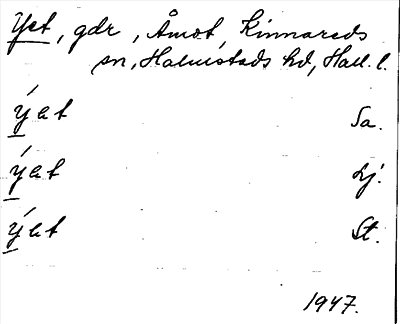 Yet, gdr, Åmot, Kinnareds
sn, Halmstads hd, Hall. l.
ýet Sa.
ýet Lj.
ýet St.
1947.